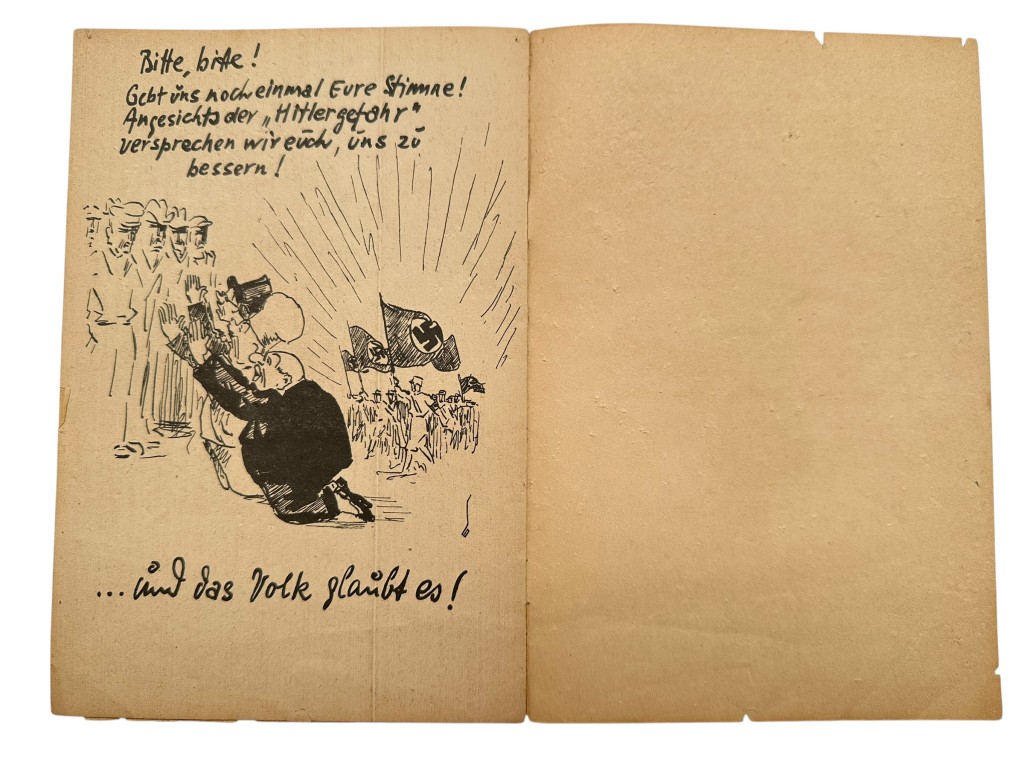 Bitte, bitte!
Gebt uns noch einmal Eure Stimme!
Angesichts der „Hitlergefahr"
versprechen wir euch, uns zu
bessern!
... und das Volk glaubt es!